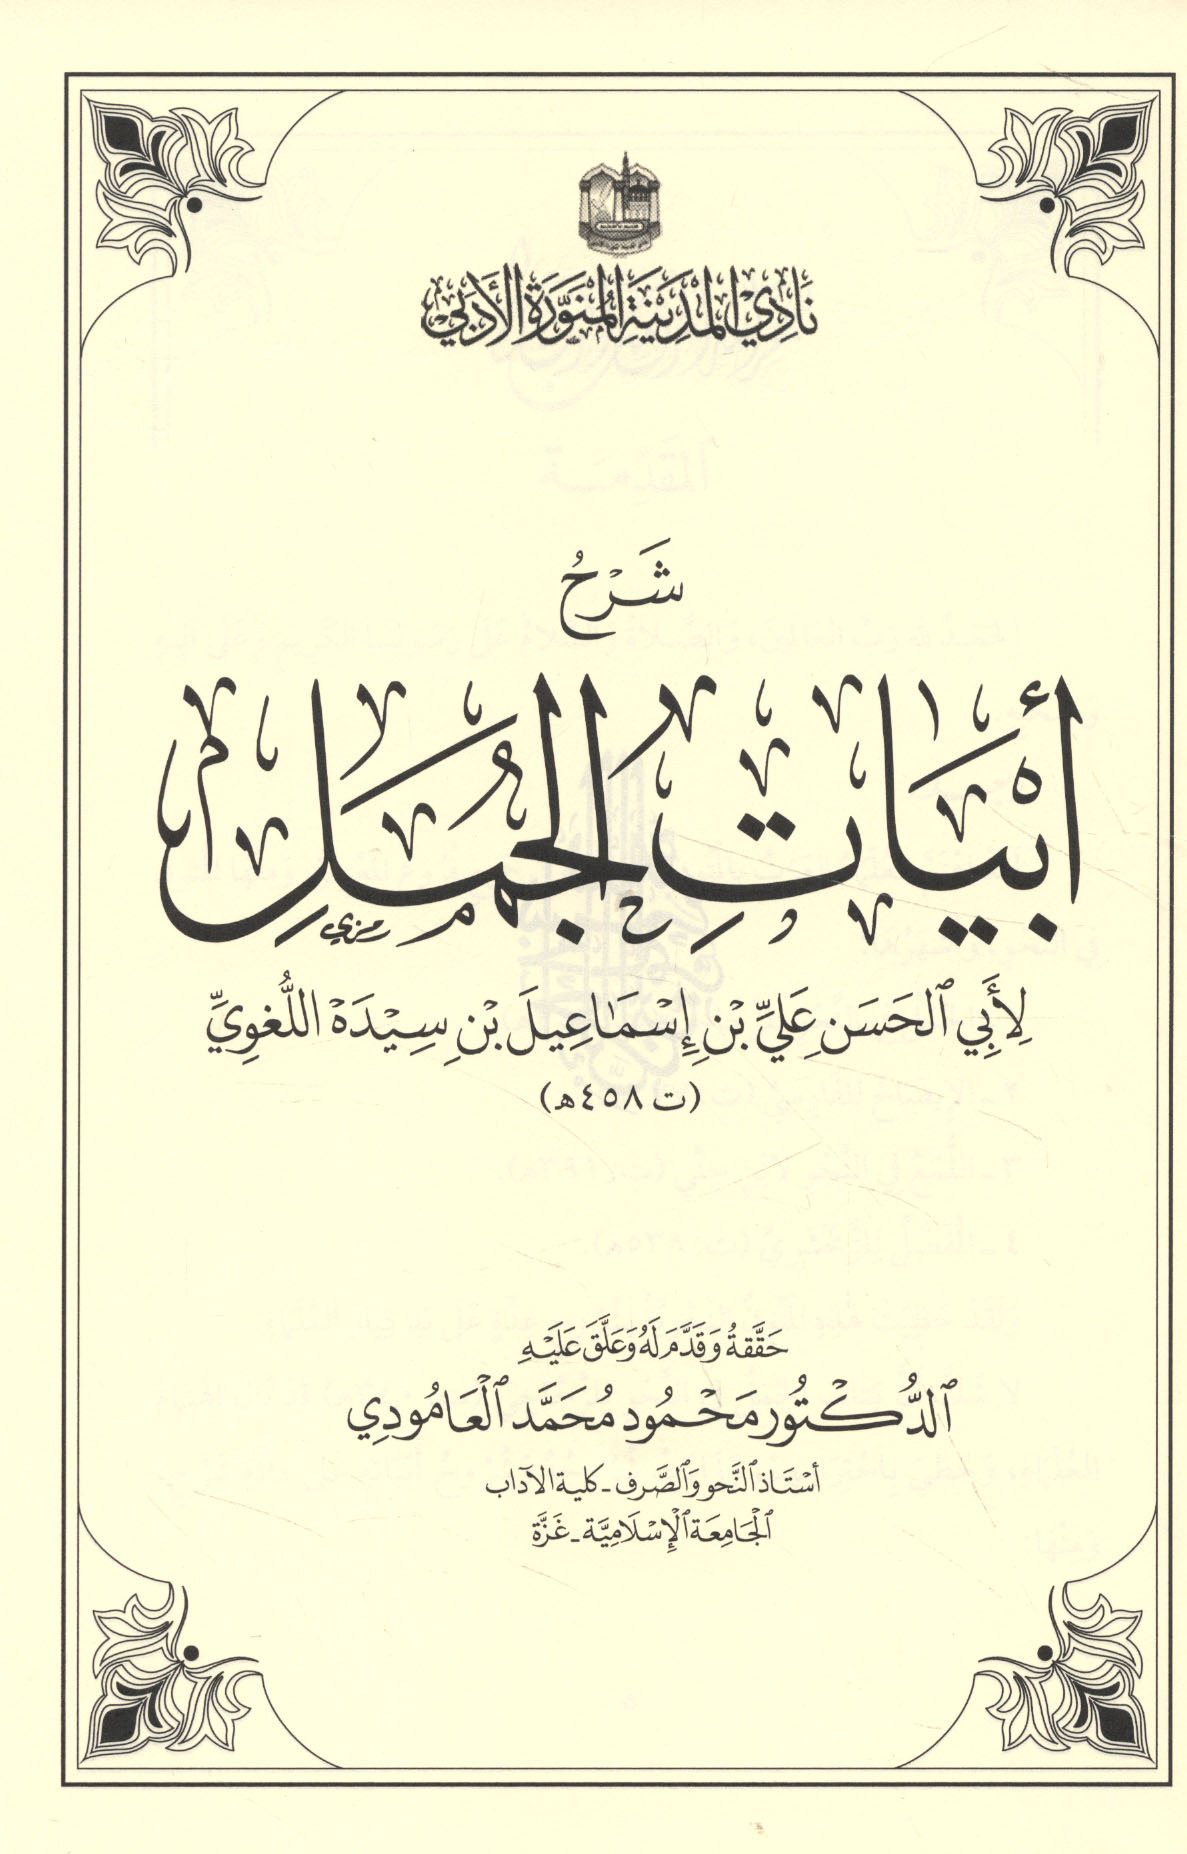 نَادِي المَدِينَةِ المُنَوَّرَةِ الأَدَبِي
شَرْحُ
أَبْيَاتِ الجُمَلِ
رمزي
لِأَبِي الحَسَن عَلِيِّ بْنِ إِسْمَاعِيلَ بْنِ سِيْدَهْ اللُّغوِيِّ
(ت ٤٥٨ه)
حَقَّقهُ وَقَدَّمَ لَهُ وَعَلَّقَ عَلَيْهِ
الدُّكْتُور مَحْمُود مُحَمَّد العَامُودِي
أسْتَاذ النَّحو وَالصَّرف - كلية الآداب
الجَامِعَة الإِسْلَامِيَّة - غَزَّة